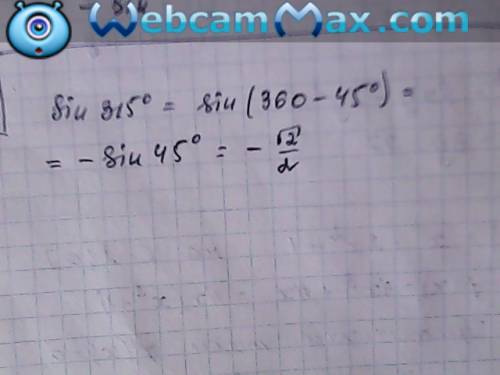 WebcamMax.com
sin 315° = sin (360 - 45°) =
= - sin 45° = - √2/2